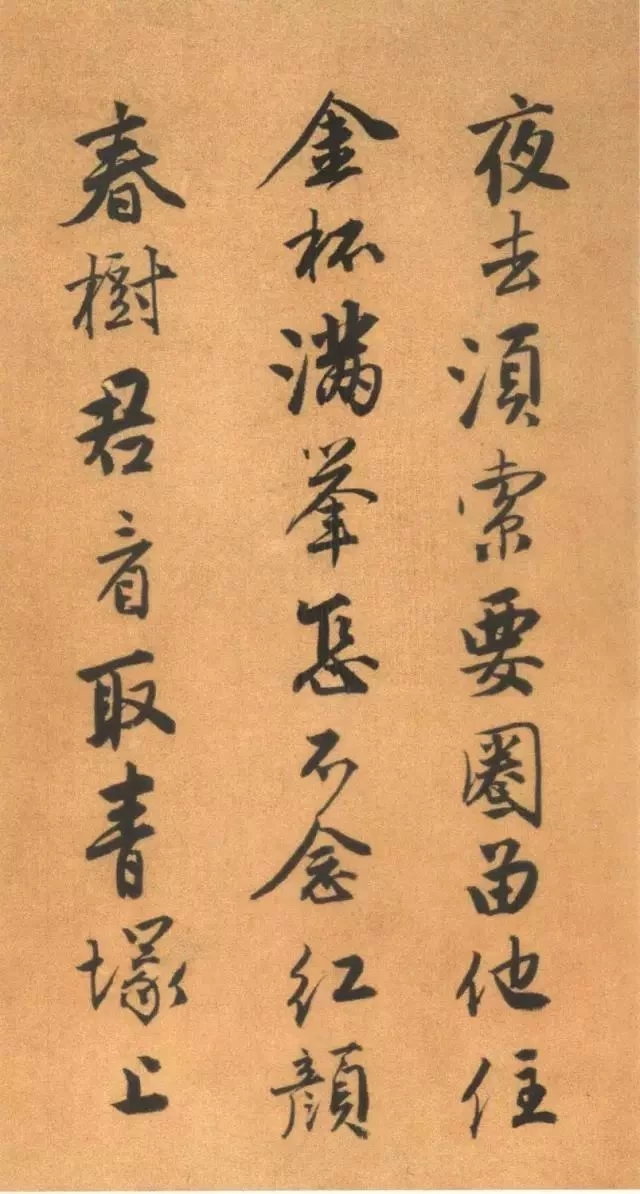 夜去須索要圈留他住
金杯滿舉怎不念紅顏
春樹君看取青塚上